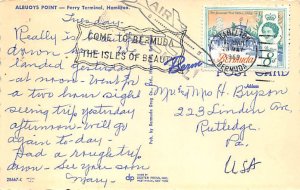 ALBUOYS POINT — Ferry Terminal, Hamilton.
Tuesday -
Really is
down
at noon - Went for
a two hour sight
seeing trip yesterday
afternoon - Will go
again to-day -
Had a rough trip
down - See you soon
Mary -
AIR
COME TO BERMUDA
THE ISLES OF BEAUTY
Bermuda
POST CARD
Mr & Mrs H. Bryson
223 Linden Ave
Rutledge
Pa.
USA
DEXTER PRESS, INC.
WEST NYACK, NEW YORK